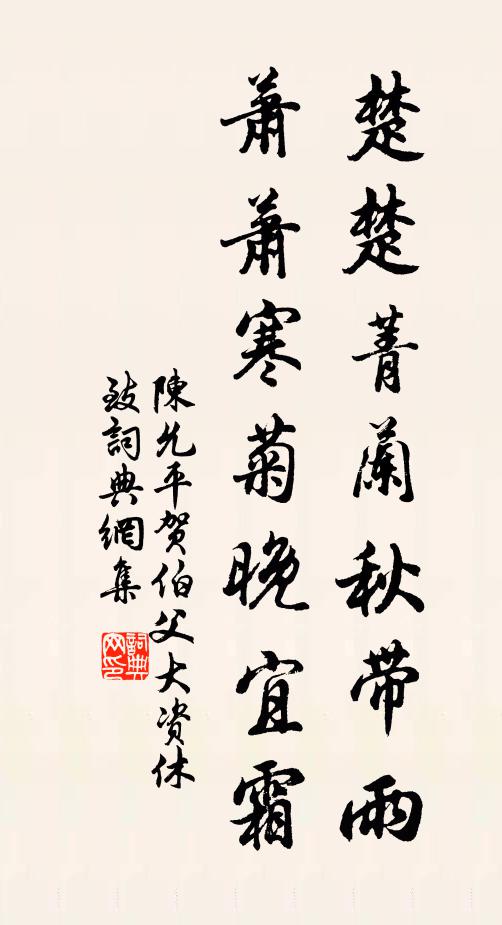 楚楚菁蘭秋带雨
蕭蕭寒菊晚宜霜
陳允平賀伯父大資休
致詞典網集
詞典網印